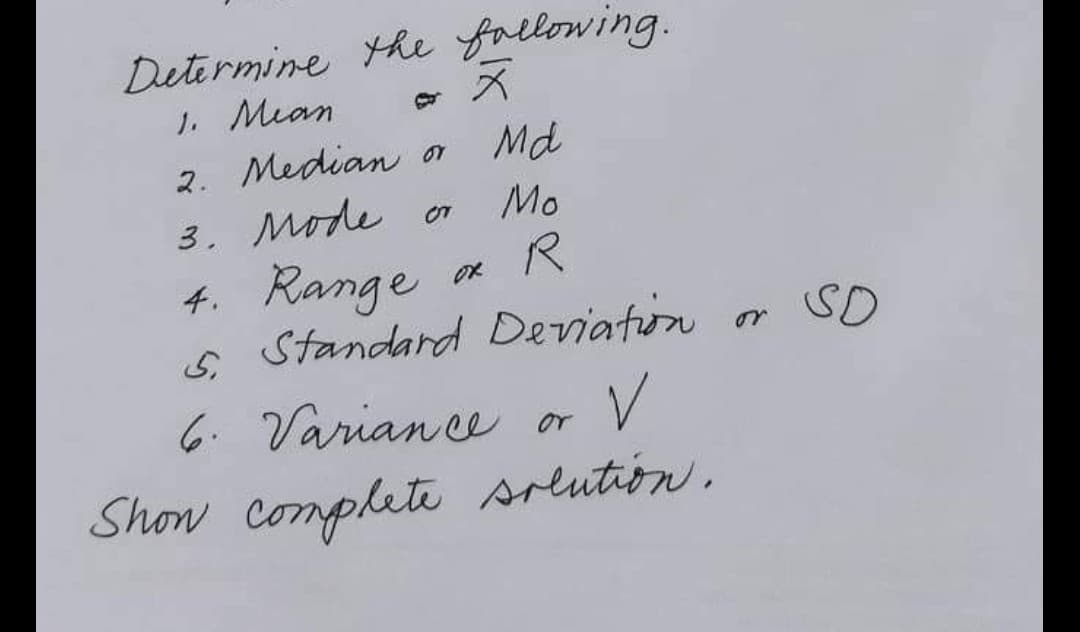 Determine the following.
1. Mean or x̄
2. Median or Md
3. Mode or Mo
4. Range or R
5. Standard Deviation or SD
6. Variance or V
Show complete solution.